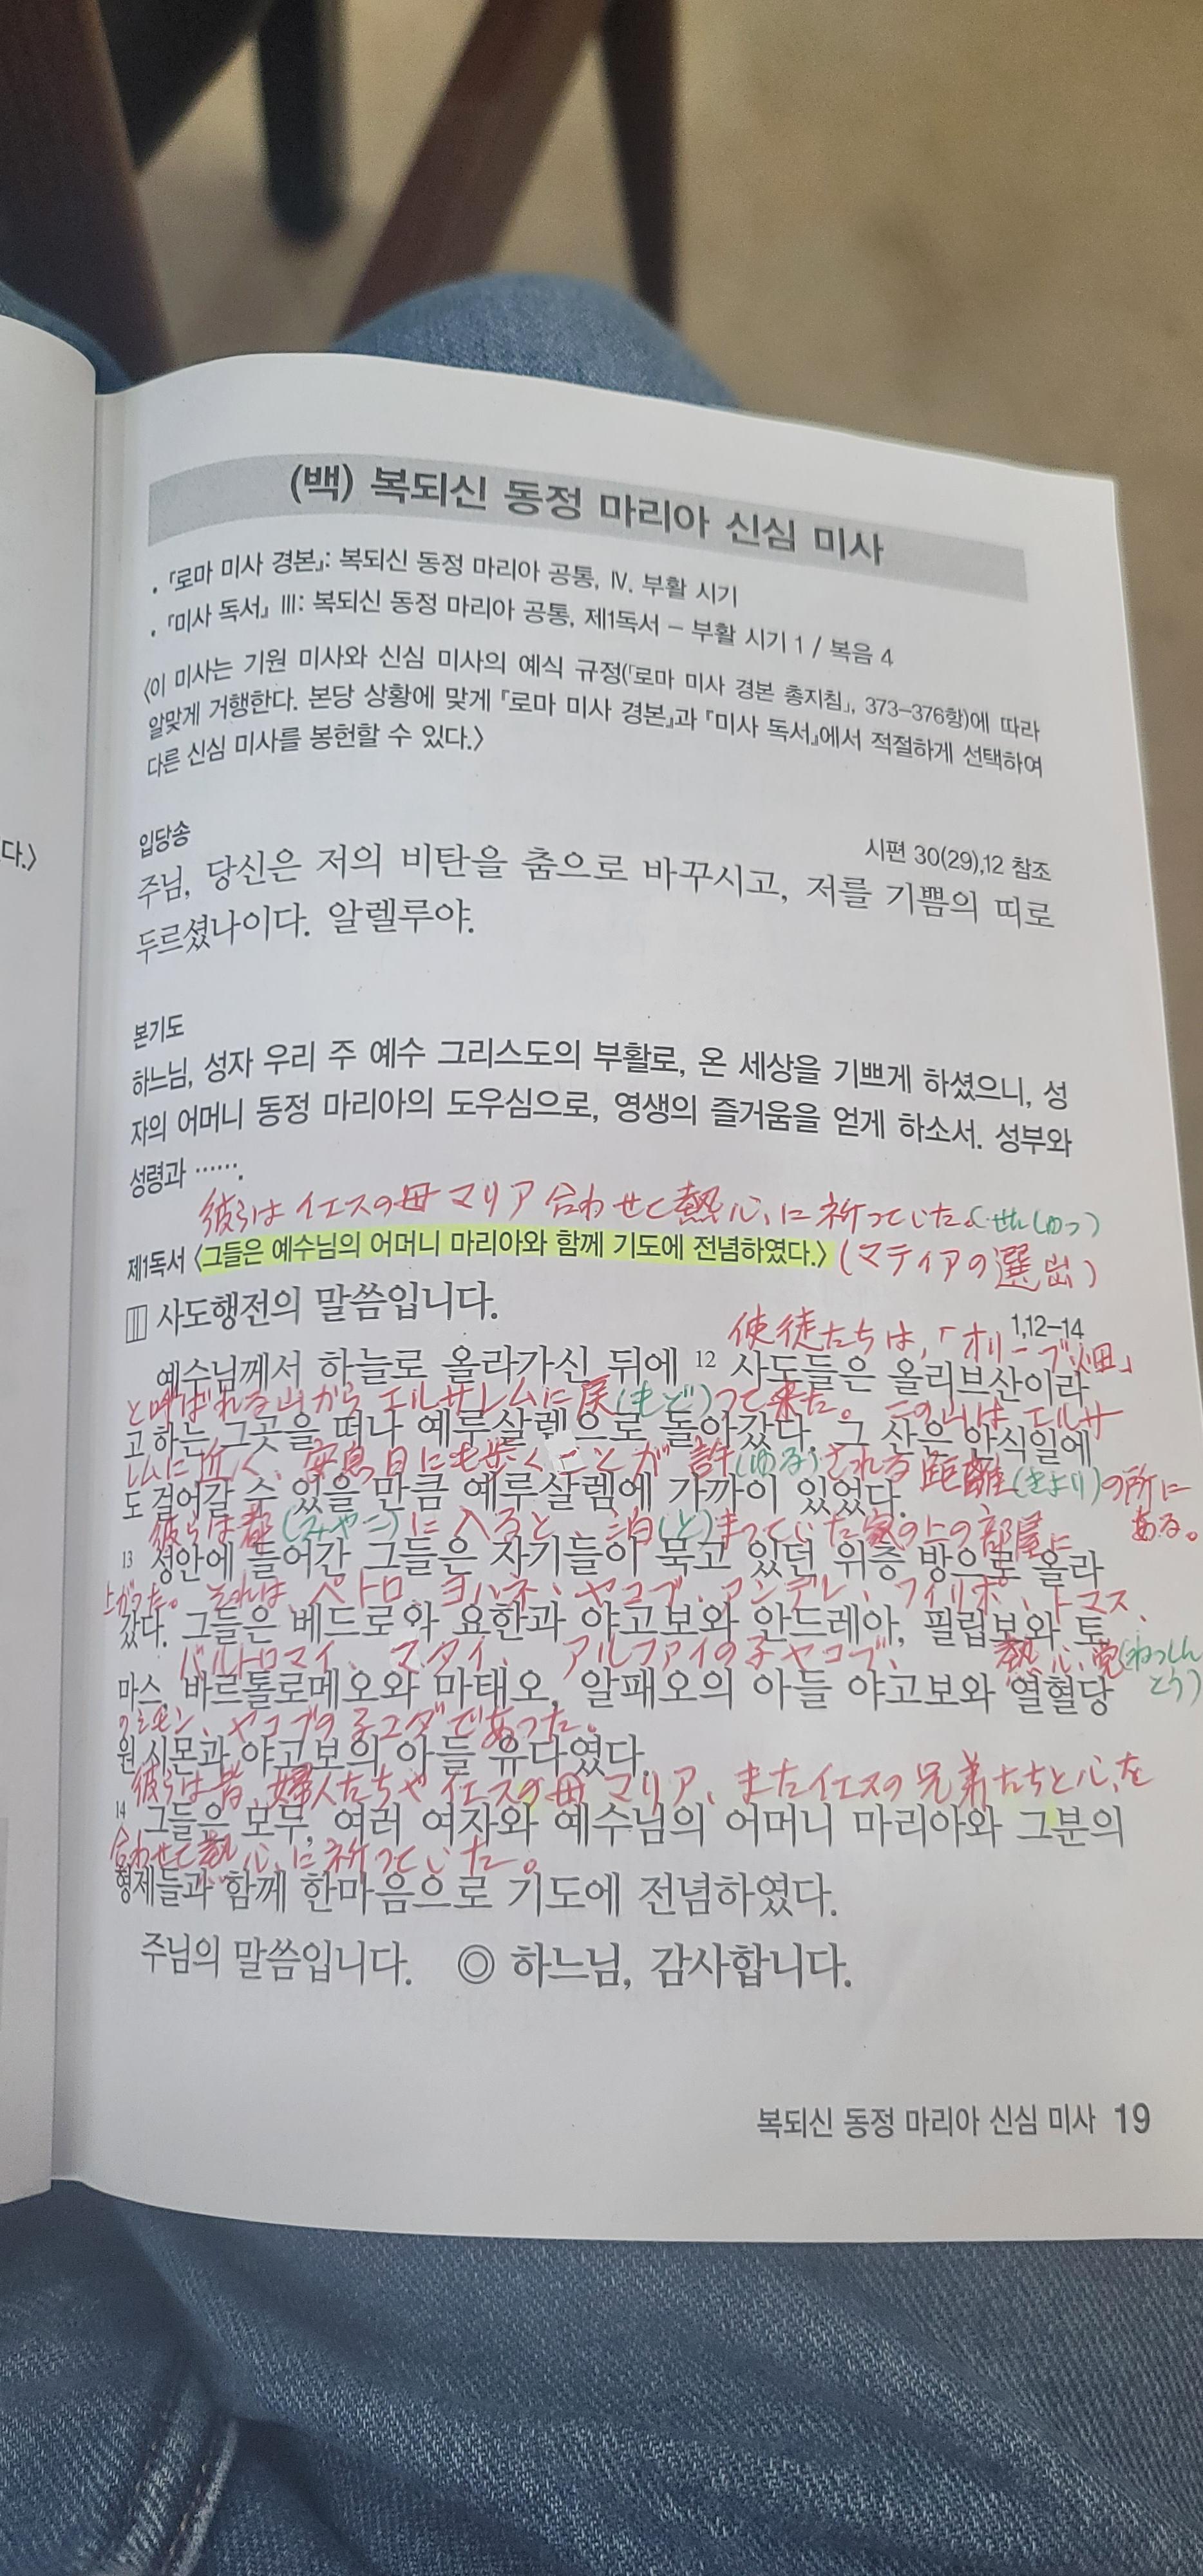 다.〉
(백) 복되신 동정 마리아 신심 미사
• 『로마 미사 경본』: 복되신 동정 마리아 공통, Ⅳ. 부활 시기
• 『미사 독서』 Ⅲ: 복되신 동정 마리아 공통, 제1독서 – 부활 시기 1 / 복음 4
〈이 미사는 기원 미사와 신심 미사의 예식 규정(「로마 미사 경본 총지침」, 373–376항)에 따라
알맞게 거행한다. 본당 상황에 맞게 『로마 미사 경본』과 『미사 독서』에서 적절하게 선택하여
다른 신심 미사를 봉헌할 수 있다.〉
입당송
시편 30(29),12 참조
주님, 당신은 저의 비탄을 춤으로 바꾸시고, 저를 기쁨의 띠로
두르셨나이다. 알렐루야.
본기도
하느님, 성자 우리 주 예수 그리스도의 부활로, 온 세상을 기쁘게 하셨으니, 성
자의 어머니 동정 마리아의 도우심으로, 영생의 즐거움을 얻게 하소서. 성부와
성령과 …….
彼らはイエスの母マリア合わせて熱心に祈っていた。(せんしゅつ)
제1독서 〈그들은 예수님의 어머니 마리아와 함께 기도에 전념하였다.〉 (マティアの選出)
▥ 사도행전의 말씀입니다.
1,12–14
使徒たちは、「オリーブ畑」
예수님께서 하늘로 올라가신 뒤에 12 사도들은 올리브산이라
と呼ばれる山からエルサレムに戻(もど)って来た。この山はエルサ
고 하는 그곳을 떠나 예루살렘으로 돌아갔다. 그 산은 안식일에
レムに近く、安息日にも歩くことが許(ゆる)される距離(きょり)の所に
ある。
도 걸어갈 수 있을 만큼 예루살렘에 가까이 있었다.
彼らは都(みやこ)に入ると、泊(と)まっていた家の上の部屋に
13 성안에 들어간 그들은 자기들이 묵고 있던 위층 방으로 올라
上がった。それは、ペトロ、ヨハネ、ヤコブ、アンデレ、フィリポ、トマス、
갔다. 그들은 베드로와 요한과 야고보와 안드레아, 필립보와 토
バルトロマイ、マタイ、アルファイの子ヤコブ、熱心党(ねっしん
とう)
마스, 바르톨로메오와 마태오, 알패오의 아들 야고보와 열혈당
のシモン、ヤコブの子ユダであった。
원 시몬과 야고보의 아들 유다였다.
彼らは皆、婦人たちやイエスの母マリア、またイエスの兄弟たちと心を
14 그들은 모두, 여러 여자와 예수님의 어머니 마리아와 그분의
合わせて熱心に祈っていた。
형제들과 함께 한마음으로 기도에 전념하였다.
주님의 말씀입니다. ◎ 하느님, 감사합니다.
복되신 동정 마리아 신심 미사 19